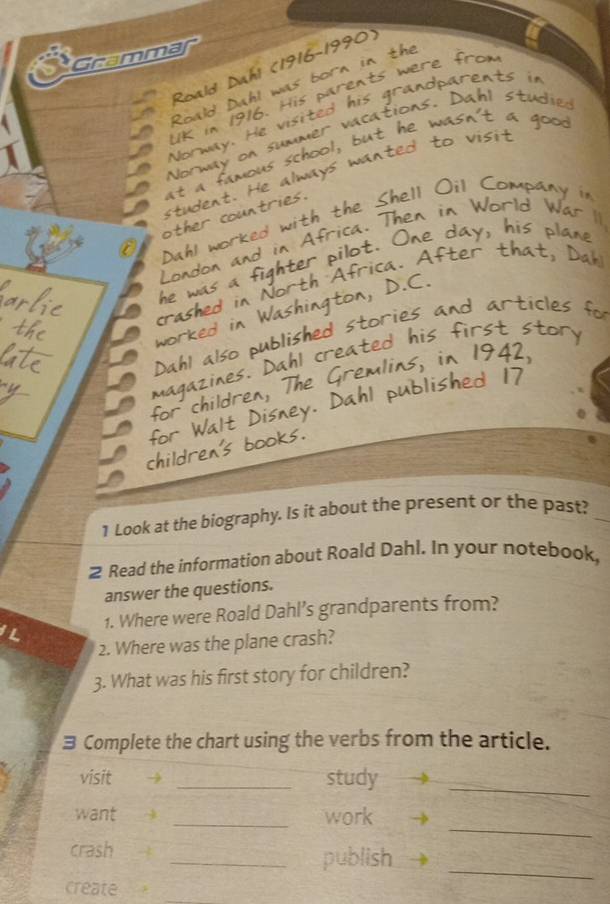 Grammar
Roald Dahl (1916-1990)
Roald Dahl was born in the
UK in 1916. His parents were from
Norway. He visited his grandparents in
Norway on summer vacations. Dahl studied
at a famous school, but he wasn't a good
student. He always wanted to visit
other countries.
Dahl worked with the Shell Oil Company in
London and in Africa. Then in World War II
he was a fighter pilot. One day, his plane
crashed in North Africa. After that, Dahl
worked in Washington, D.C.
Dahl also published stories and articles for
magazines. Dahl created his first story
for children, The Gremlins, in 1942,
for Walt Disney. Dahl published 17
children's books.
the
1 Look at the biography. Is it about the present or the past?
2 Read the information about Roald Dahl. In your notebook,
answer the questions.
1. Where were Roald Dahl's grandparents from?
2. Where was the plane crash?
3. What was his first story for children?
3 Complete the chart using the verbs from the article.
visit → ________ study → ________
want → ________ work → ________
crash → ________ publish → ________
create → ________